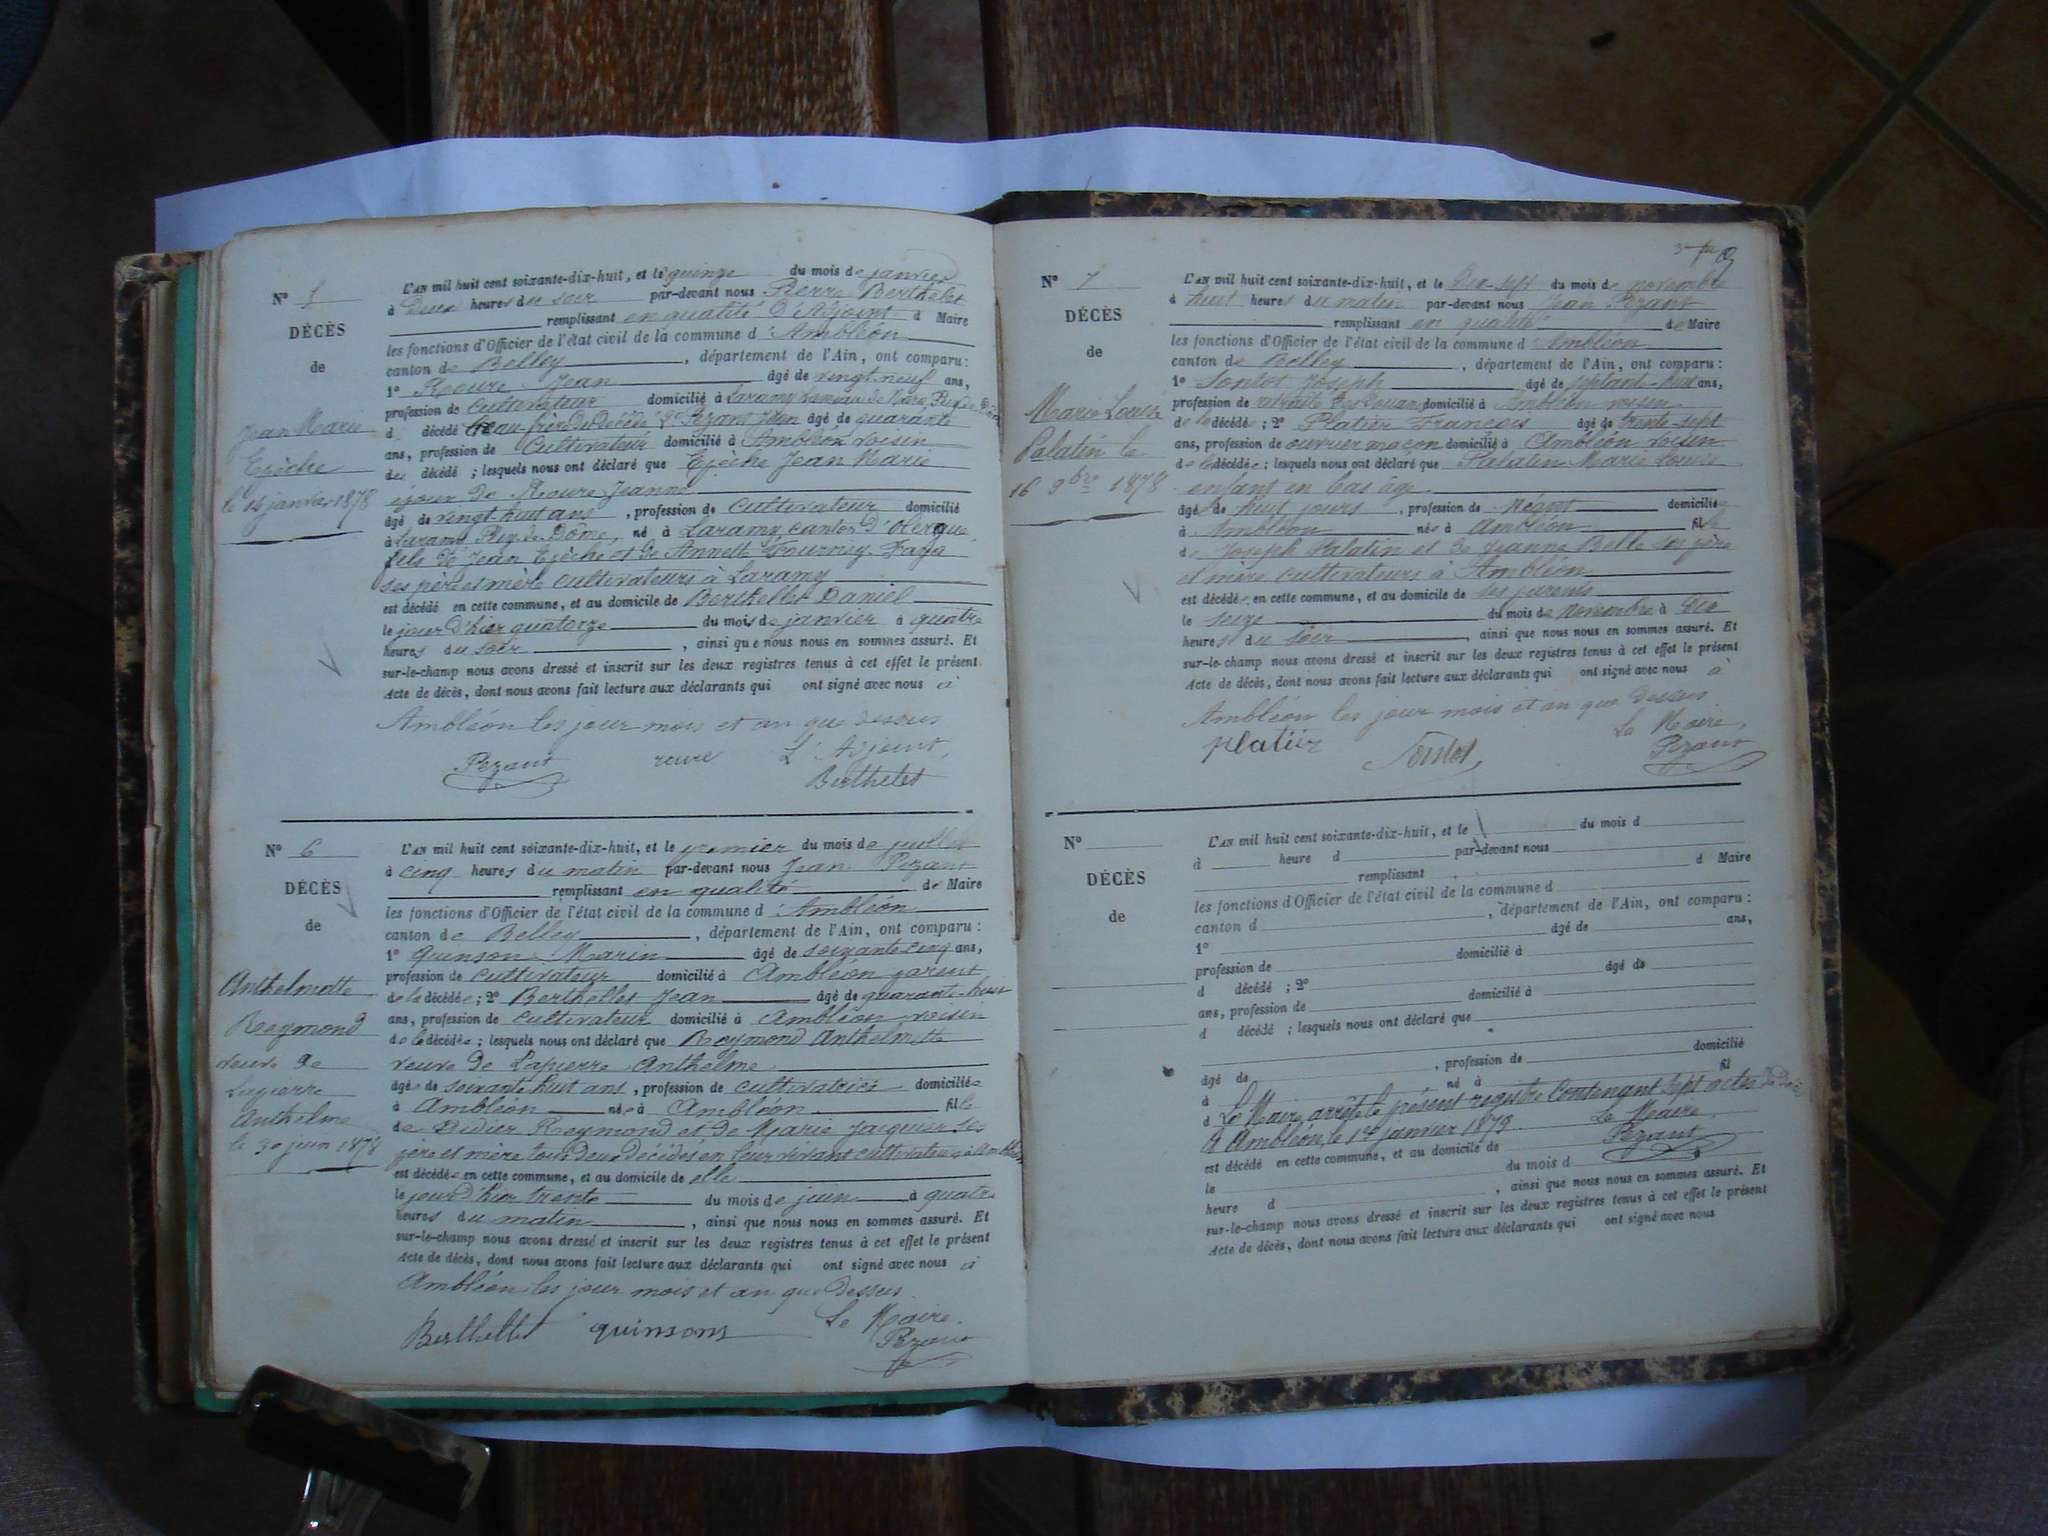 N° 5
DÉCÈS
de
Jean Marie
Ejèche
le 14 janvier 1878
L'AN mil huit cent soixante-dix-huit, et le quinze du mois de janvier
à Deux heures du soir par-devant nous Pierre Berthelet
remplissant en qualité d'Adjoint d Maire
les fonctions d'Officier de l'état civil de la commune d'Ambléon
canton de Belley, département de l'Ain, ont comparu :
1° Roure Jean âgé de vingt neuf ans,
profession de cultivateur domicilié à Laramy
d décédé Beau-frère du décédé 2° Pezant Jean âgé de quarante
ans, profession de Cultivateur domicilié à Ambléon voisin
du décédé ; lesquels nous ont déclaré que Ejèche Jean Marie
époux de Roure Jeanne
âgé de vingt huit ans, profession de cultivateur domicilié
à Laramy Puy de Dôme, né à Laramy canton d'
fils de Jean Ejèche et de Annette
ses père et mère cultivateurs à Laramy
est décédé en cette commune, et au domicile de Berthelet Daniel
le jour d'hier quatorze du mois de janvier à quatre
heures du soir, ainsi que nous nous en sommes assuré. Et
sur-le-champ nous avons dressé et inscrit sur les deux registres tenus à cet effet le présent
Acte de décès, dont nous avons fait lecture aux déclarants qui ont signé avec nous à
Ambléon les jour mois et an que dessus
Pezant roure L'Adjoint,
Berthelet
N° 6
DÉCÈS
de
Anthelmette
Reymond
veuve de
Lapierre
Anthelme
le 30 juin 1878
L'AN mil huit cent soixante-dix-huit, et le premier du mois de juillet
à cinq heures du matin par-devant nous Jean Pezant
remplissant en qualité de Maire
les fonctions d'Officier de l'état civil de la commune d'Ambléon
canton de Belley, département de l'Ain, ont comparu :
1° Quinson Marin âgé de soixante cinq ans,
profession de cultivateur domicilié à Ambléon parent
de la décédée ; 2° Berthellet Jean âgé de quarante-huit
ans, profession de cultivateur domicilié à Ambléon voisin
de la décédée ; lesquels nous ont déclaré que Reymond Anthelmette
veuve de Lapierre Anthelme
âgée de soixante huit ans, profession de cultivatrice domiciliée
à Ambléon née à Ambléon fille
de Didier Reymond et de Marie Jacquier ses
père et mère tous deux décédés en leur vivant cultivateurs à Ambléon
est décédée en cette commune, et au domicile de elle
le jour d'hier trente du mois de juin à quatre
heures du matin, ainsi que nous nous en sommes assuré. Et
sur-le-champ nous avons dressé et inscrit sur les deux registres tenus à cet effet le présent
Acte de décès, dont nous avons fait lecture aux déclarants qui ont signé avec nous à
Ambléon les jour mois et an que dessus.
Berthellet quinsons Le Maire.
Pezant
N° 7
DÉCÈS
de
Marie Louise
Palatin le
16 9bre 1878
L'AN mil huit cent soixante-dix-huit, et le Dix-sept du mois de novembre
à huit heures du matin par-devant nous Jean Pezant
remplissant en qualité de Maire
les fonctions d'Officier de l'état civil de la commune d'Ambléon
canton de Belley, département de l'Ain, ont comparu :
1° Joseph âgé de septante-huit ans,
profession de retraité des Douanes domicilié à Ambléon voisin
de la décédée ; 2° Platier François âgé de trente-sept
ans, profession de ouvrier maçon domicilié à Ambléon voisin
de la décédée ; lesquels nous ont déclaré que Palatin Marie Louise
enfant en bas âge
âgée de huit jours, profession de Néant domiciliée
à Ambléon née à Ambléon fille
de Joseph Palatin et de Jeanne Belle son père
et mère cultivateurs à Ambléon
est décédée en cette commune, et au domicile de ses parents
le seize du mois de Novembre à six
heures du soir, ainsi que nous nous en sommes assuré. Et
sur-le-champ nous avons dressé et inscrit sur les deux registres tenus à cet effet le présent
Acte de décès, dont nous avons fait lecture aux déclarants qui ont signé avec nous à
Ambléon les jour mois et an que dessus.
Le Maire,
platier Pezant
N°
DÉCÈS
de
L'AN mil huit cent soixante-dix-huit, et le du mois d
à heure d par-devant nous
remplissant d Maire
les fonctions d'Officier de l'état civil de la commune d
canton d , département de l'Ain, ont comparu :
1° âgé de ans,
profession de domicilié à
d décédé ; 2° âgé de
ans, profession de domicilié à
d décédé ; lesquels nous ont déclaré que
âgé de , profession de domicilié
à né à fil
d Le Maire arrête le présent registre contenant sept actes de décès
A Ambléon, le 1er janvier 1879. Le Maire.
Pezant
est décédé en cette commune, et au domicile de
le du mois d
heure d , ainsi que nous nous en sommes assuré. Et
sur-le-champ nous avons dressé et inscrit sur les deux registres tenus à cet effet le présent
Acte de décès, dont nous avons fait lecture aux déclarants qui ont signé avec nous